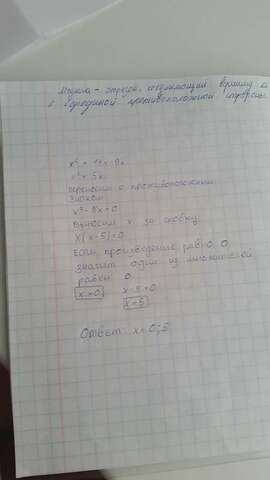 Медиана - отрезок, соединяющий вершину
с серединой противоположной стороны
x² =
x² = 5x
переносим с противоположным
знаком
x² - 5x = 0
выносим x за скобку
x(x-5)=0
Если произведение равно 0
значит один из множителей
равен 0
x=0 x-5=0
x=5
Ответ: x=0;5